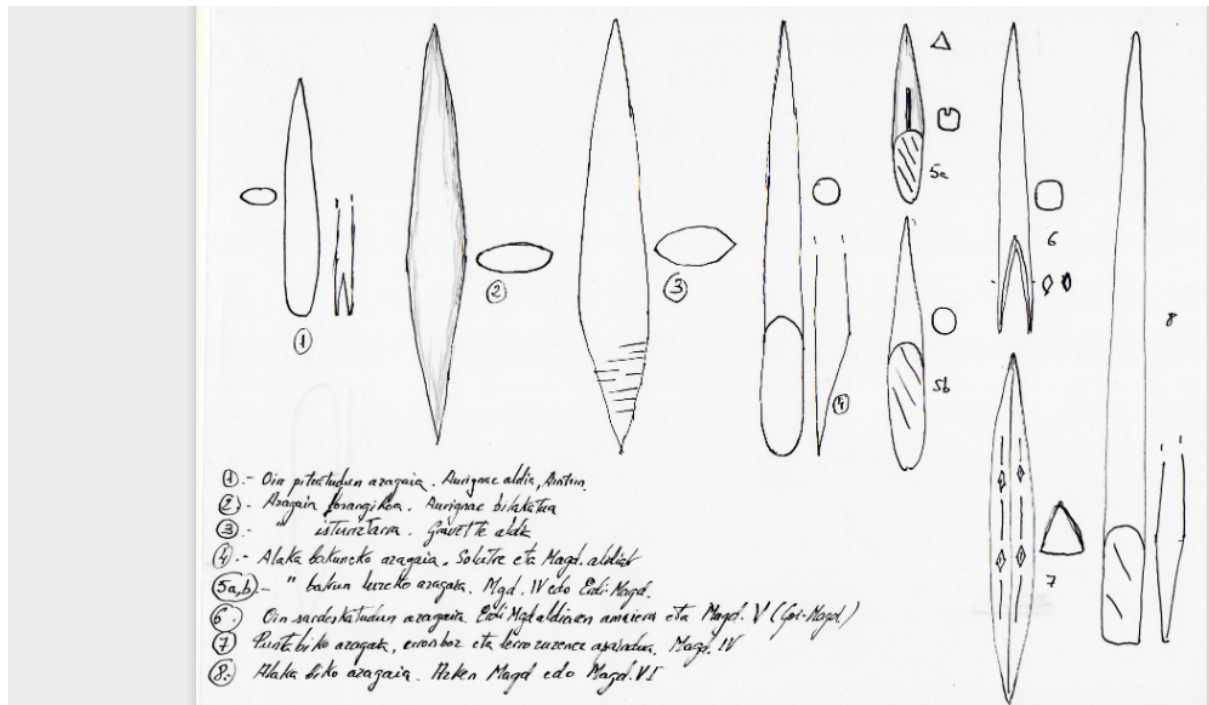 5a
6
2
3
8
1
5b
4
7
1.- Oin pitzatudun azagaia. Aurignac aldia,
2.- Azagaia losangikoa. Aurignac bilakatua
3.- " isturiztarra. Gravette aldia
4.- Alaka bakuneko azagaia. Solutre eta Magd. aldiak
5a,b.- " bakun luzeko azagaia. Mgd. IV edo Erdi-Magd.
6. Oin sardexkatudun azagaia. Erdi Mgd aldiaren amaiera eta Magd. V (Goi-Magd.)
7 Punta biko azagaia, erronboz eta lerro zuzenez apaindua, Magd. IV
8.- Alaka biko azagaia. Azken Magd edo Magd. VI